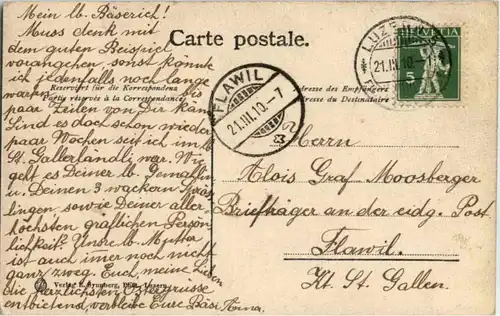 Mein lb. Bäserich!
Muss denk mit
dem guten Beispiel
vorangehen, sonst könnte
ich jedenfalls noch lange
warten bis ich ein
paar Zeilen von Dir käm.
Sind es doch schon wieder
paar Wochen seit ich im lb.
St. Gallerländli war. Wie
geht es Deiner lb. Gemahlin
u. Deinen 3 wackern
lingen, sowie Deiner aller-
höchsten gräflichen Persön-
lichkeit. Unsre lb. Mutter
ist auch imer noch nicht
ganz zweg. Euch, meine Lieben
die herzlichsten Ostergrüsse
entbietend, verbleibe Eure Bäsi Anna.
Carte postale.
Reserviert für die Korrespondenz
Partie réservée à la Correspondance
Adresse des Empfängers
Adresse du Destinataire
FLAWIL
21.III.10.-7
LUZERN
21.III.10.-
HELVETIA
5
Herrn
Alois Graf Moosberger
Briefträger an der eidg. Post
Flawil.
Kt. St. Gallen.
Verlag E. Synnberg, Luzern